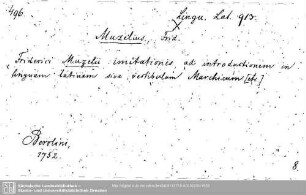 496.
Lingu. Lat. 913.
Muzelius, Frid.
Friderici Muzelii imitationes ad introductionem in
linguam latinam sive vestibulum Marchicum [etc]
Berolini,
1752.
8
Sächsische Landesbibliothek -
Staats- und Universitätsbibliothek Dresden